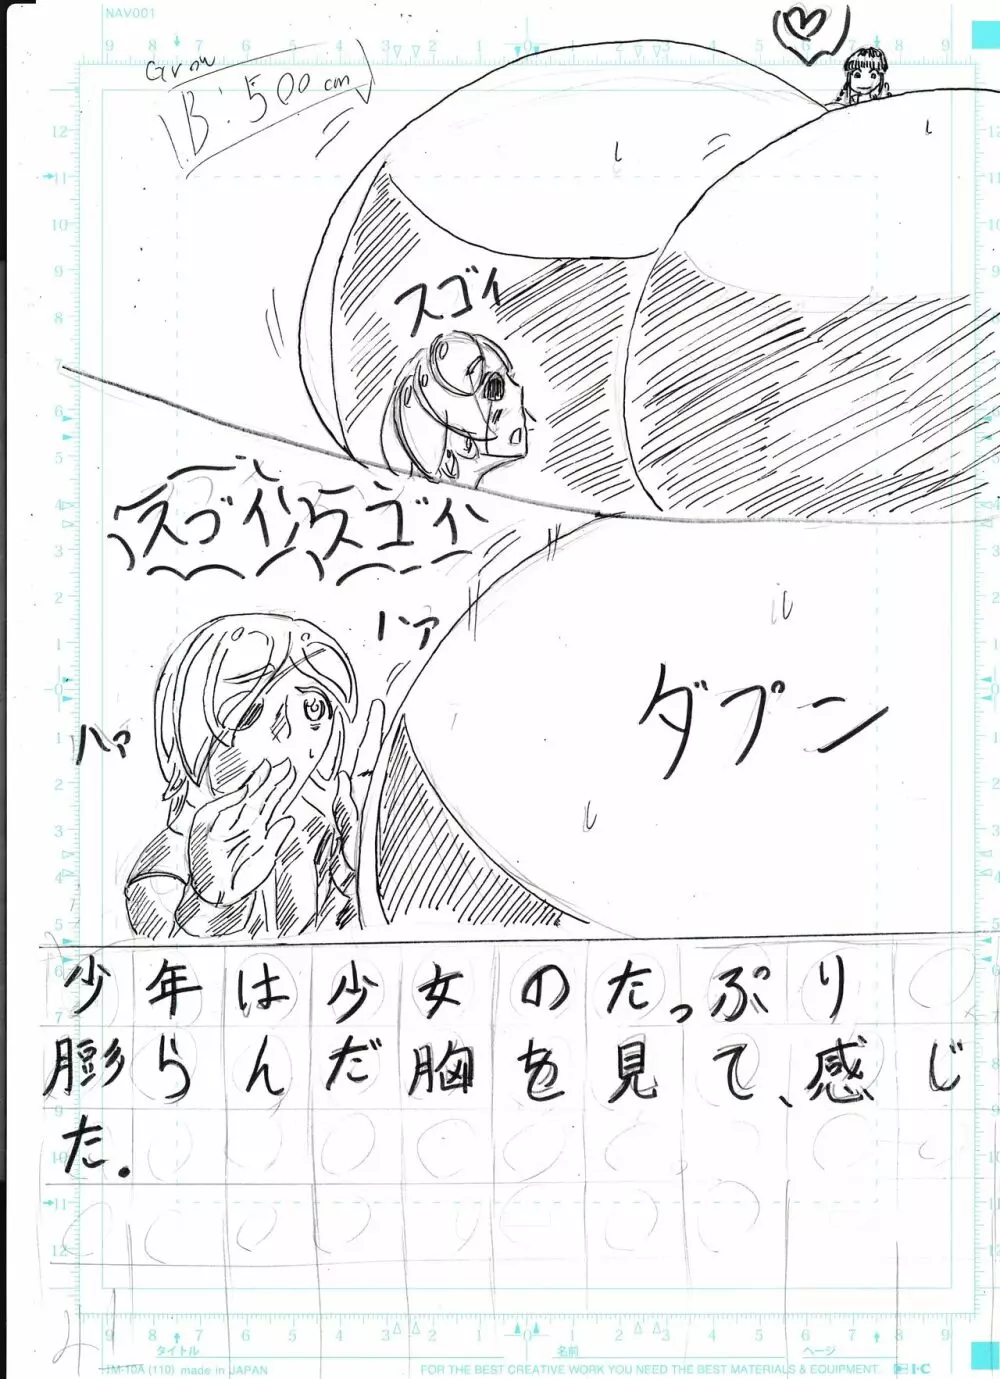 NAV001
Grow
B:500cm
スゴイ
スゴイ スゴイ
ハァ
ハァ
ダプン
少年は少女のたっぷり
膨らんだ胸を見て、感じ
た。
タイトル
名前
ページ
IM-10A (110) made in JAPAN
FOR THE BEST CREATIVE WORK YOU NEED THE BEST MATERIALS & EQUIPMENT.
I·C